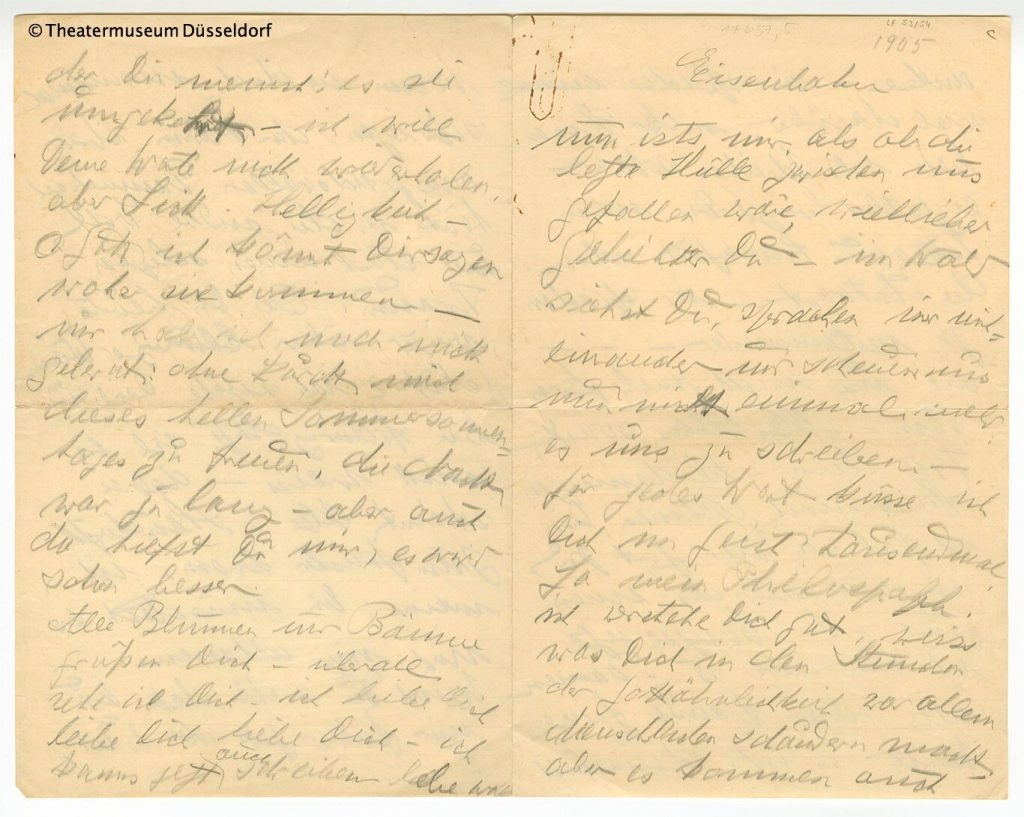 © Theatermuseum Düsseldorf
1905
Eisenbahn
nun ists mir, als ob die
letzte Hülle zwischen uns
gefallen wäre, viellieber
geliebter Du – im Wald
siehst Du, sprachen wir mit=
einander nur scheuen uns
nun nicht einmal mehr
es uns zu schreiben –
für jedes Wort küsse ich
Dich im Geist tausendmal
Ja mein Philosoph,
ich verstehe Dich gut, weiss
was Dich in den Stunden
der Gottähnlichkeit vor allem
Menschlichen schaudern macht
aber es kommen auch
der Du meinst: es sei
umgekehrt – ich will
Deine Worte nicht wiederholen,
aber Licht. Helligkeit –
O Gott ich könnt Dir sagen
woher sie kommen –
wir haben noch nicht
gelernt: ohne Furcht und
dieses hellen Sommersonnen-
tages zu freuen, die Nacht
war zu lang – aber auch
da hilfst Du mir, es wird
schon besser.
Alle Blumen und Bäume
grüßen Dich – überall
seh ich Dich – ich liebe Dich
liebe Dich liebe Dich – ich
kanns jetzt auch schreiben